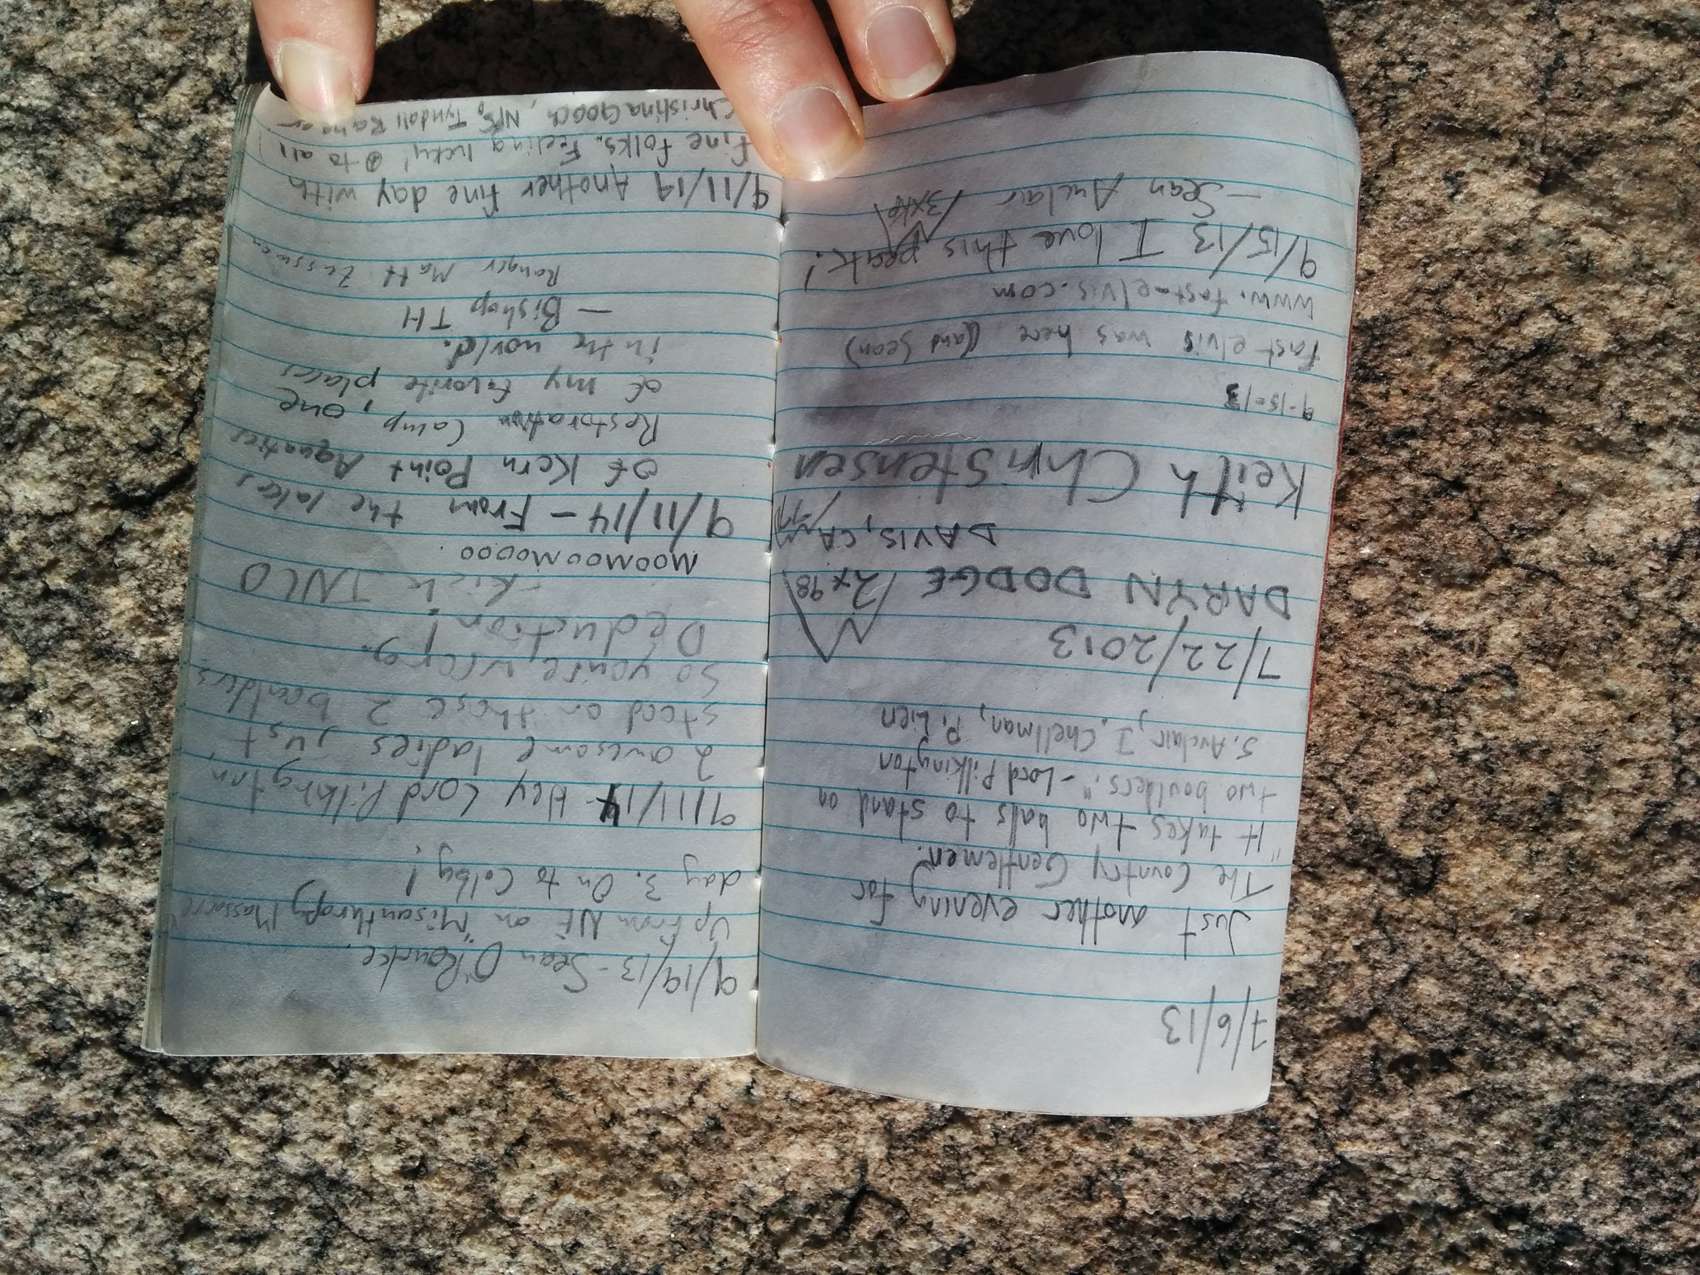 7/6/13
Just another evening for
The Country Gentlemen.
"It takes two balls to stand on
two boulders." - Lord Pilkington
S. Auclair, J. Chellman, P. Lien
7/22/2013
DARYN DODGE 2x98
DAVIS, CA
Keith Christensen
9-15-13
fast elvis was here (and Sean)
www.fast-elvis.com
9/15/13 I love this peak!
— Sean Auclair
9/19/13 - Sean O'Rourke.
Up from NE on "Misanthropy Massacre"
day 3. On to Colby!
9/11/14 - Hey Lord Pilkington,
2 awesome ladies just
stood on those 2 boulders
so you're wrong.
Deduction!
MOOMOOMOOOO
9/11/14 - From the lakes
of Kern Point Aquatics
Restoration Camp, one
of my favorite places
in the world.
— Bishop TH
Ranger Matt
9/11/14 Another fine day with
fine folks. Feeling lucky! to all
Christina Gooch, NPS, Tyndall Ranger